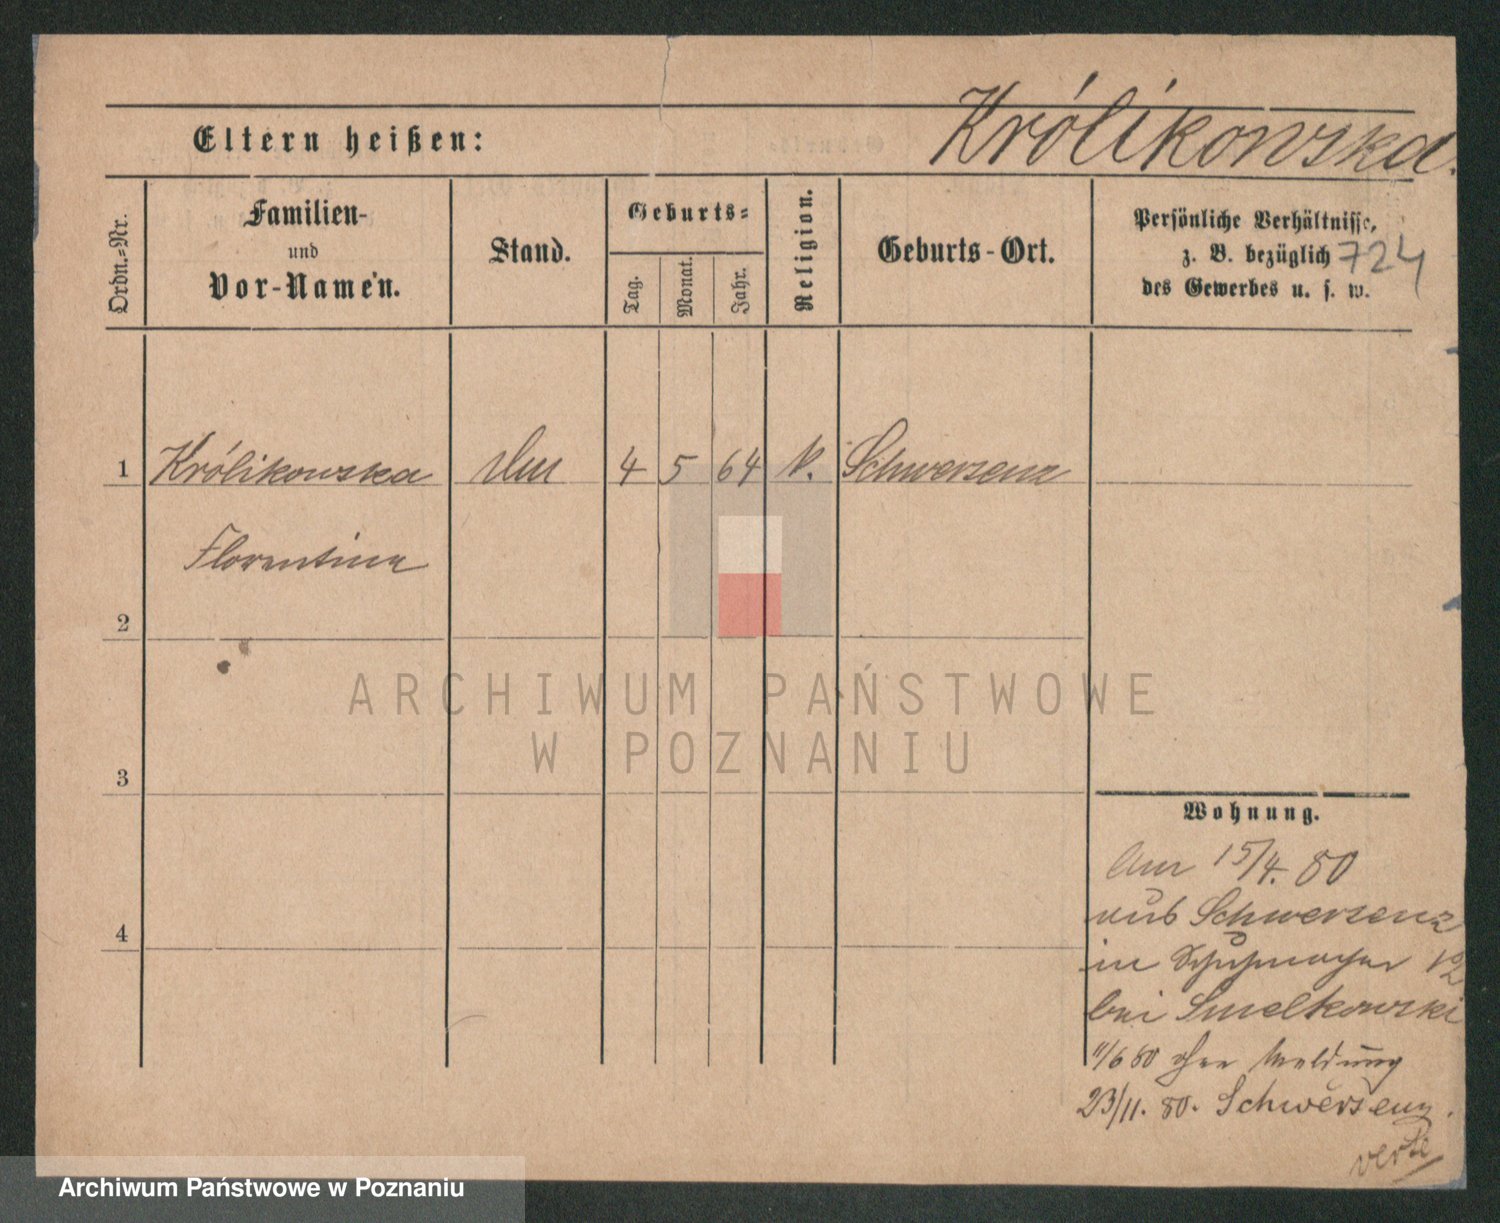 Królikowska.
Eltern heißen:
Ordn.-Nr.
Familien-
und
Vor-Namen.
Stand.
Geburts-
Tag.
Monat.
Jahr.
Religion.
Geburts-Ort.
Persönliche Verhältnisse,
z. B. bezüglich 724
des Gewerbes u. s. w.
1 Królikowska 4 5 64 k. Schwersenz
Florentina
2
3
4
ARCHIWUM PAŃSTWOWE
W POZNANIU
Wohnung.
Am 15/4. 80
aus Schwersenz
in 12
bei Smelkowski
11/6 80 ohne Meldung
23/11. 80. Schwersenz.
verte
Archiwum Państwowe w Poznaniu